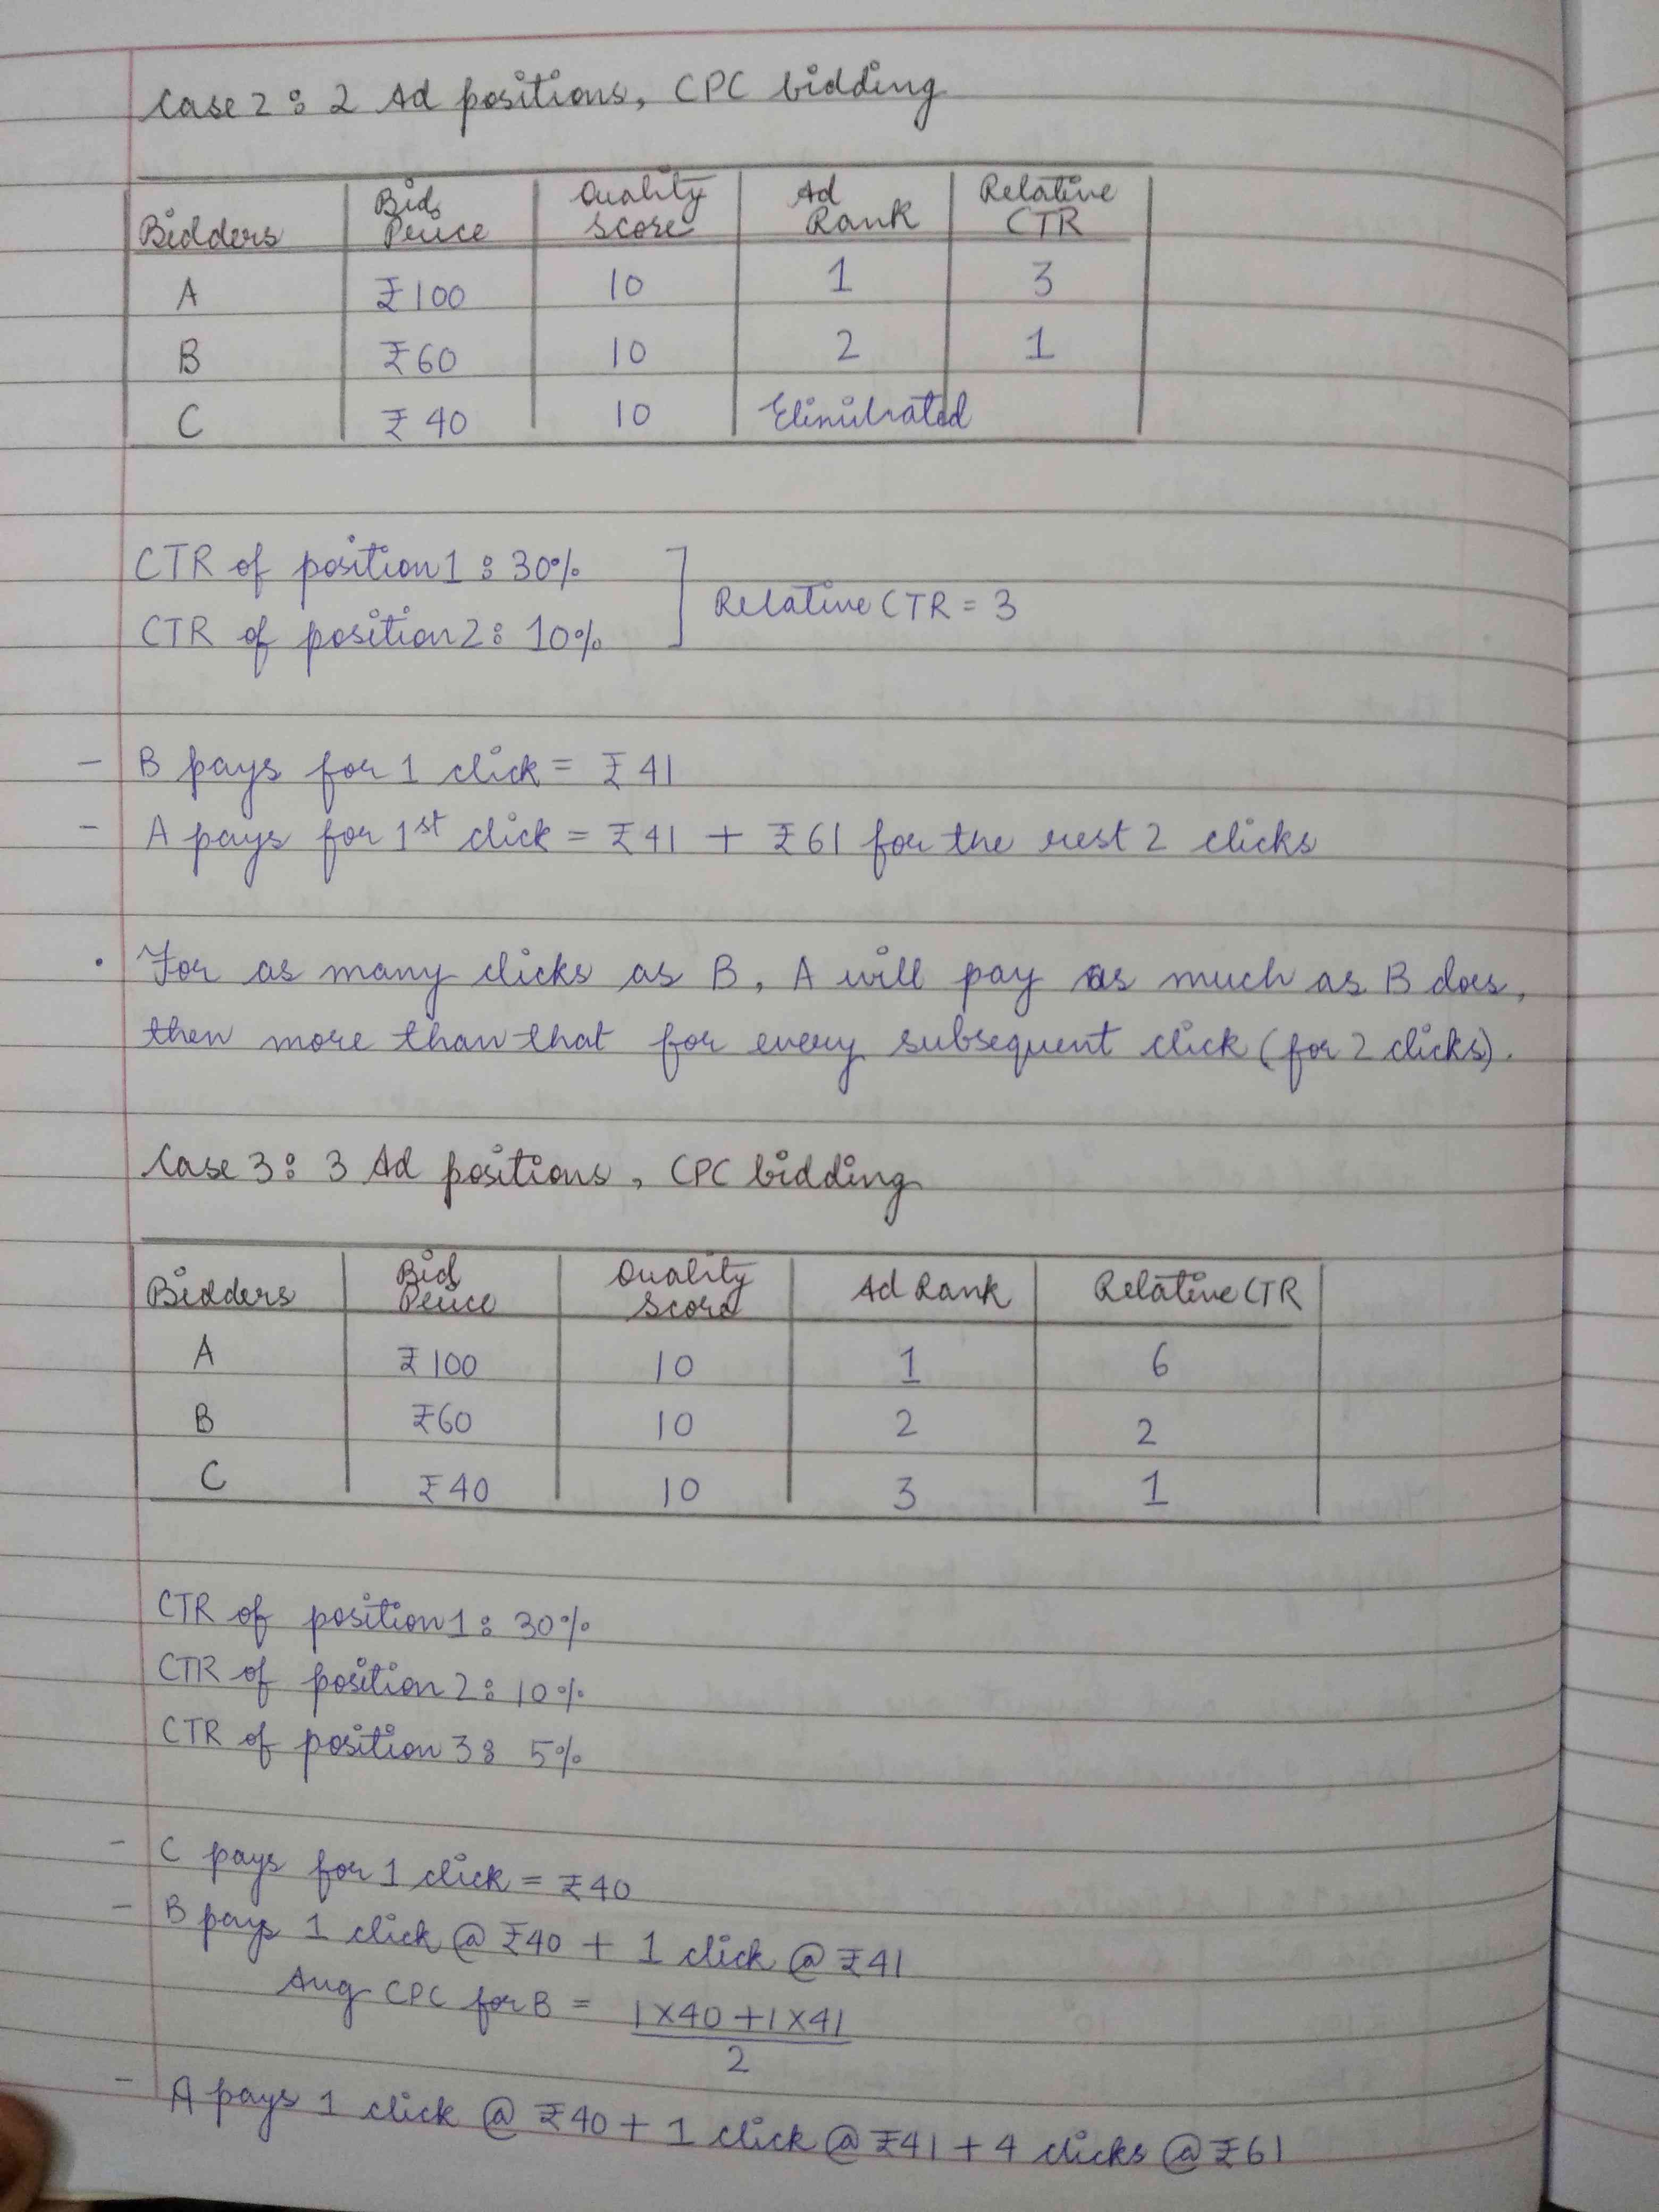 Case 2: 2 Ad positions, CPC bidding
Bidders | Bid Price | Quality Score | Ad Rank | Relative CTR
A | ₹100 | 10 | 1 | 3
B | ₹60 | 10 | 2 | 1
C | ₹40 | 10 | Eliminated
CTR of position 1: 30%
CTR of position 2: 10%
Relative CTR = 3
- B pays for 1 click = ₹41
- A pays for 1st click = ₹41 + ₹61 for the rest 2 clicks
• For as many clicks as B, A will pay as much as B does,
then more than that for every subsequent click (for 2 clicks).
Case 3: 3 Ad positions, CPC bidding
Bidders | Bid Price | Quality Score | Ad Rank | Relative CTR
A | ₹100 | 10 | 1 | 6
B | ₹60 | 10 | 2 | 2
C | ₹40 | 10 | 3 | 1
CTR of position 1: 30%
CTR of position 2: 10%
CTR of position 3: 5%
- C pays for 1 click = ₹40
- B pays 1 click @ ₹40 + 1 click @ ₹41
Avg CPC for B = 1×40 + 1×41
2
- A pays 1 click @ ₹40 + 1 click @ ₹41 + 4 clicks @ ₹61